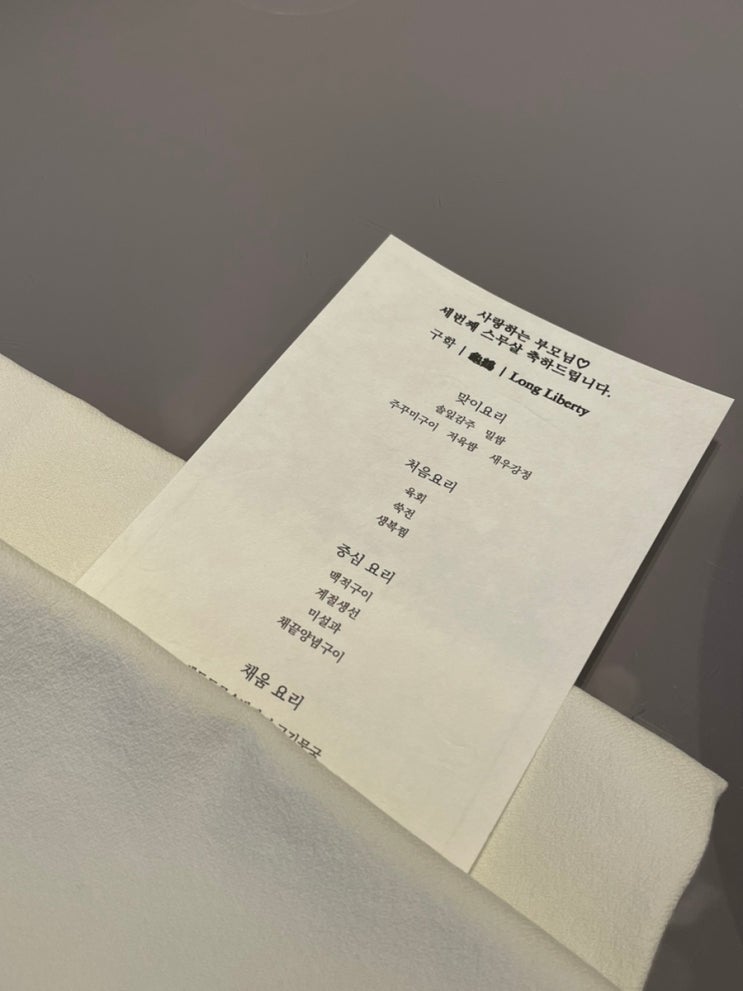 사랑하는 부모님♡
세번째 스무살 축하드립니다.
구학 | | Long Liberty
맞이요리
솔잎감주 밀쌈
주꾸미구이 저육쌈 새우강정
처음요리
육회
쑥전
생복찜
중심 요리
맥적구이
계절생선
미설과
채끝양념구이
채움 요리